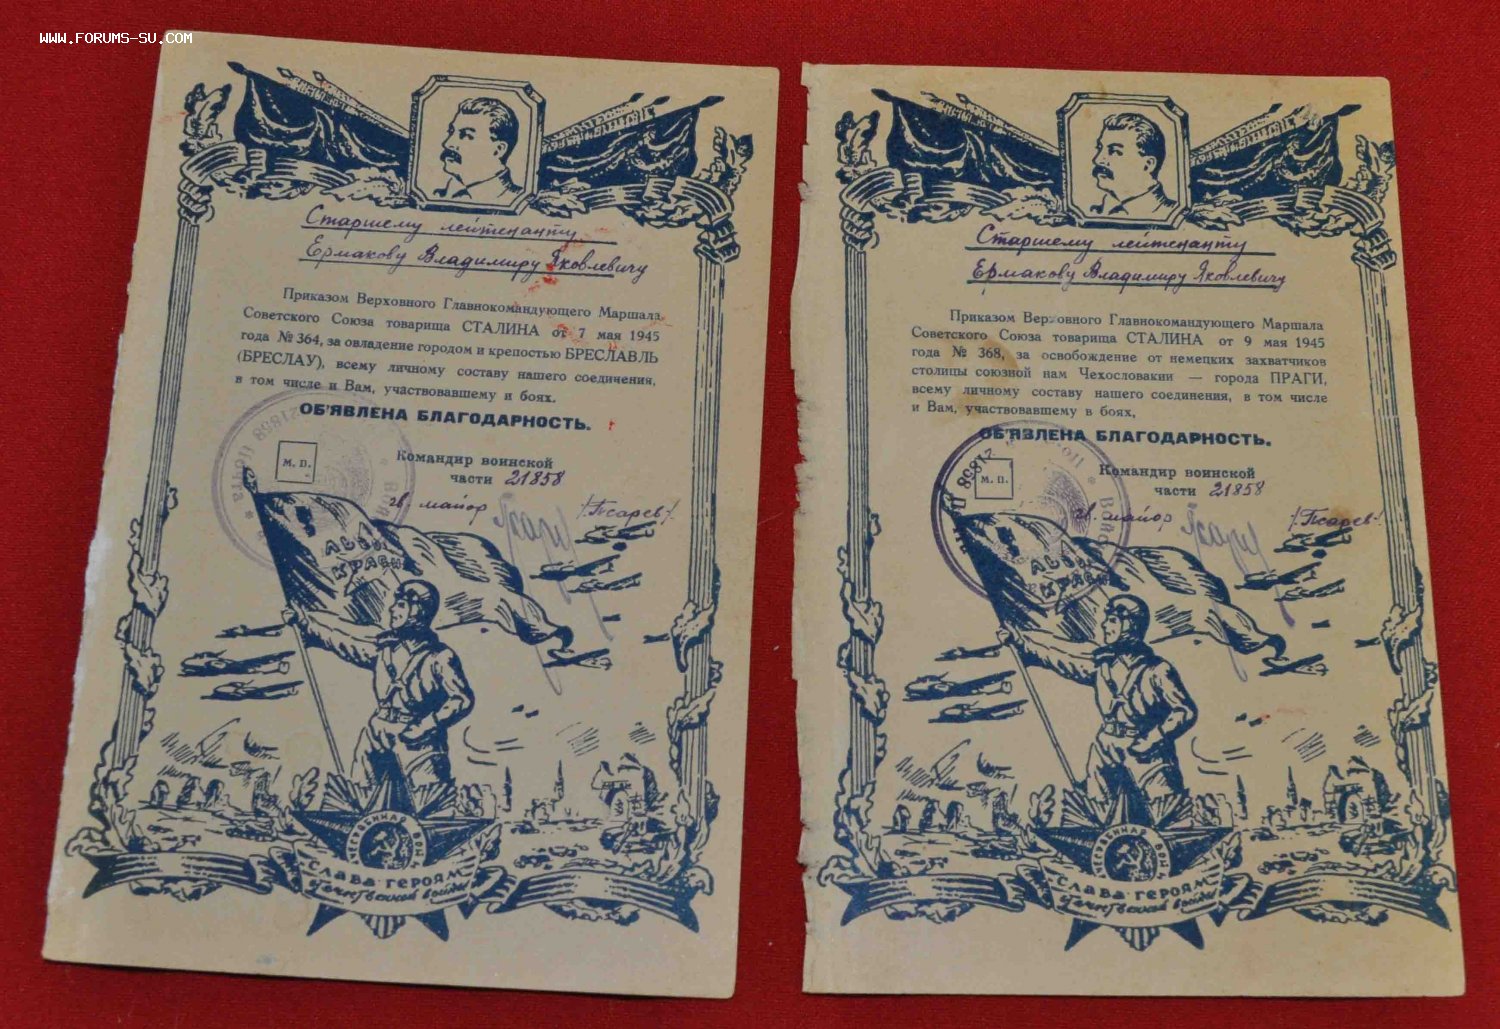 WWW.FORUMS-SU.COM
Старшему лейтенанту
Ермакову Владимиру Яковлевичу
Приказом Верховного Главнокомандующего Маршала
Советского Союза товарища СТАЛИНА от 7 мая 1945
года № 364, за овладение городом и крепостью БРЕСЛАВЛЬ
(БРЕСЛАУ), всему личному составу нашего соединения,
в том числе и Вам, участвовавшему и боях.
ОБ'ЯВЛЕНА БЛАГОДАРНОСТЬ.
М. П.
Командир воинской
части 21858
гв. майор /Писарев/
СЛАВА ГЕРОЯМ
Отечественной войны
Старшему лейтенанту
Ермакову Владимиру Яковлевичу
Приказом Верховного Главнокомандующего Маршала
Советского Союза товарища СТАЛИНА от 9 мая 1945
года № 368, за освобождение от немецких захватчиков
столицы союзной нам Чехословакии — города ПРАГИ,
всему личному составу нашего соединения, в том числе
и Вам, участвовавшему в боях,
ОБ'ЯВЛЕНА БЛАГОДАРНОСТЬ.
М. П.
Командир воинской
части 21858
гв. майор /Писарев/
СЛАВА ГЕРОЯМ
Отечественной войны